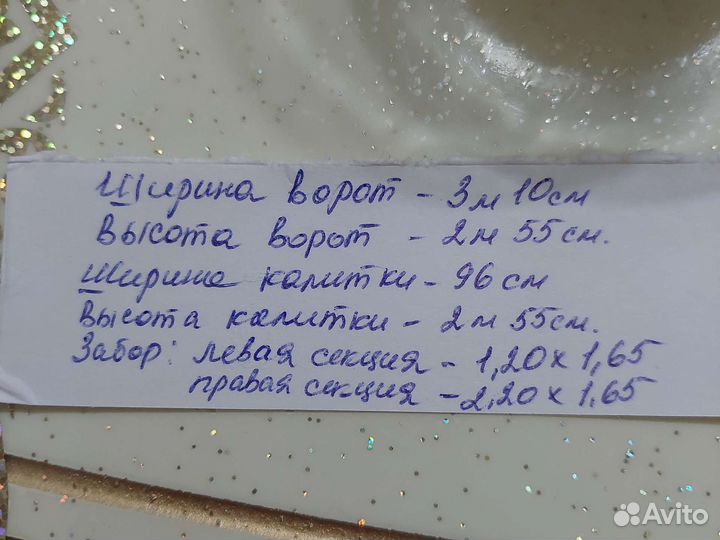 Ширина ворот - 3 м 10 см
Высота ворот - 2 м 55 см.
Ширина калитки - 96 см
Высота калитки - 2 м 55 см.
Забор: левая секция - 1,20 х 1,65
правая секция - 2,20 х 1,65
Avito